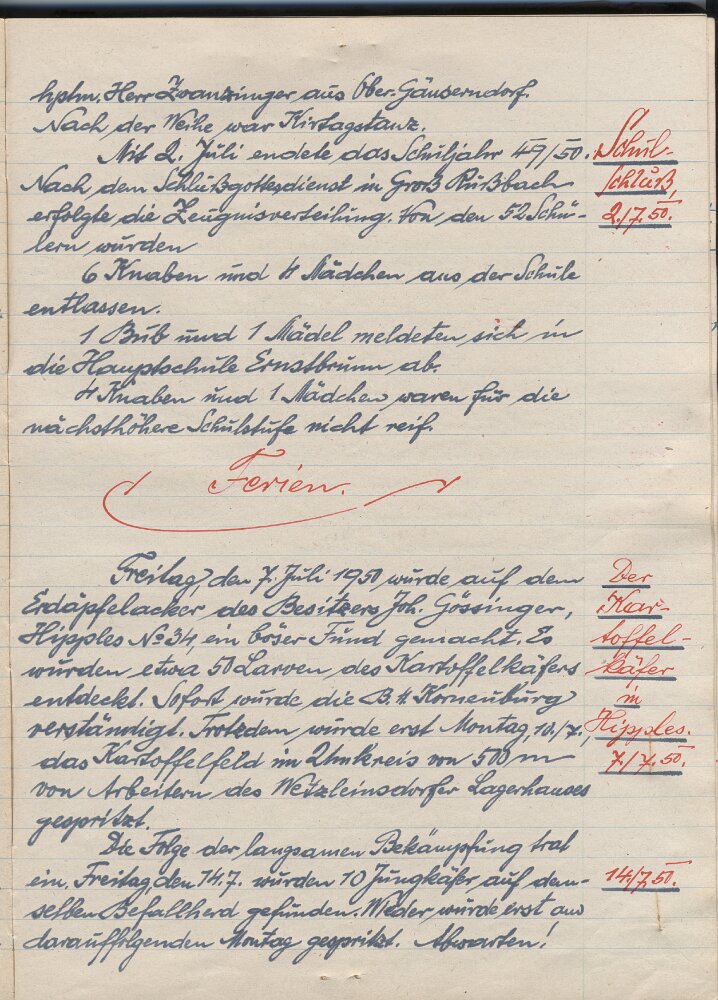 hptm. Herr Zwanzinger aus Ober-Gänserndorf.
Nach der Weihe war Kirtagstanz.
Mit 2. Juli endete das Schuljahr 49/50.
Schul-
schluß
2./7.50.
Nach dem Schlußgottesdienst in Groß Rußbach
erfolgte die Zeugnisverteilung. Von den 52 Schü-
lern wurden
6 Knaben und 4 Mädchen aus der Schule
entlassen.
1 Bub und 1 Mädel meldeten sich in
die Hauptschule Ernstbrunn ab.
4 Knaben und 1 Mädchen waren für die
nächsthöhere Schulstufe nicht reif.
Ferien.
Freitag, den 7. Juli 1950 wurde auf dem
Erdäpfelacker des Besitzers Joh. Gössinger,
Hipples No 34, ein böser Fund gemacht. Es
wurden etwa 50 Larven des Kartoffelkäfers
entdeckt. Sofort wurde die B.H. Korneuburg
verständigt. Trotzdem wurde erst Montag, 10./7.,
das Kartoffelfeld im Umkreis von 500 m
von Arbeitern des Wetzleinsdorfer Lagerhauses
gespritzt.
Der
Kar-
toffel-
käfer
in
Hipples.
7./7.50.
Die Folge der langsamen Bekämpfung trat
ein. Freitag, den 14.7. wurden 10 Jungkäfer auf dem-
selben Befallherd gefunden. Wieder wurde erst am
darauffolgenden Montag gespritzt. Abwarten!
14./7.50.